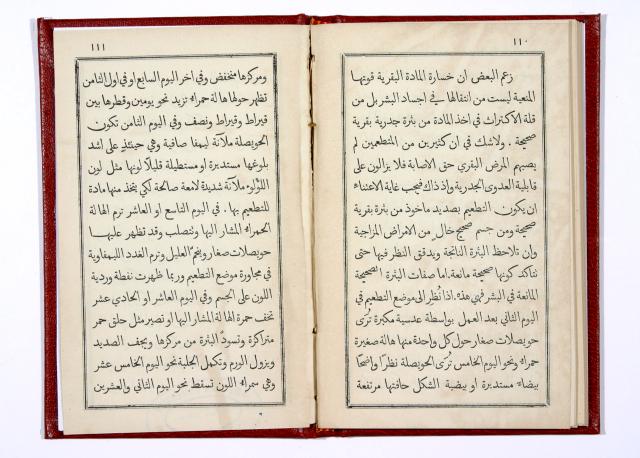 ١١٠
زعم البعض ان خسارة المادة البقرية قوتها
المنعية ليست من انتقالها في اجساد البشر بل من
قلة الاكتراث في اخذ المادة من بثرة جدرية بقرية
صحيحة . ولاشك في ان كثيرين من المتطعمين لم
يصبهم المرض البقري حق الاصابة فلا يزالون على
قابلية العدوى الجدرية واذ ذاك فيجب غاية الاعتناء
ان يكون التطعيم بصديد ماخوذ من بثرة بقرية
صحيحة ومن جسم صحيح خالٍ من الامراض المزاجية
وان تلاحظ البثرة الناتجة ويدقق النظر فيها حتى
نتاكد كونها صحيحة مانعة . اما صفات البثرة الصحيحة
المانعة في البشر فهي هذه . اذا نُظر الى موضع التطعيم في
اليوم الثاني بعد العمل بواسطة عدسية مكبرة تُرَى
حويصلات صغار حول كل واحدة منها هالة صغيرة
حمراء ونحو اليوم الخامس تُرَى الحويصلة نظرًا واضحًا
بيضاء مستديرة او بيضية الشكل حافتها مرتفعة
١١١
ومركزها منخفض وفي اخر اليوم السابع او في اول الثامن
تظهر حولها هالة حمراء تزيد نحو يومين وقطرها بين
قيراط وقيراط ونصف وفي اليوم الثامن تكون
الحويصلة ملآنة ليمفا صافية وهي حينئذٍ على اشد
بلوغها مستديرة او مستطيلة قليلًا لونها مثل لون
اللؤلو ملآنة شديدة لامعة صالحة لكي يتخذ منها مادة
للتطعيم بها . في اليوم التاسع او العاشر ترم الهالة
الحمراء المشار اليها وتتصلب وقد تظهر عليها
حويصلات صغار ويحُمّ العليل وترم الغدد الليمفاوية
في مجاورة موضع التطعيم وربما ظهرت نفطة وردية
اللون على الجسم وفي اليوم العاشر او الحادي عشر
تخف حمرة الهالة المشار اليها او تصير مثل حلق حمر
متراكزة وتسودّ البثرة من مركزها ويجف الصديد
ويزول الورم وتكمل الجلبة نحو اليوم الخامس عشر
وهي سمراء اللون تسقط نحو اليوم الثاني والعشرين